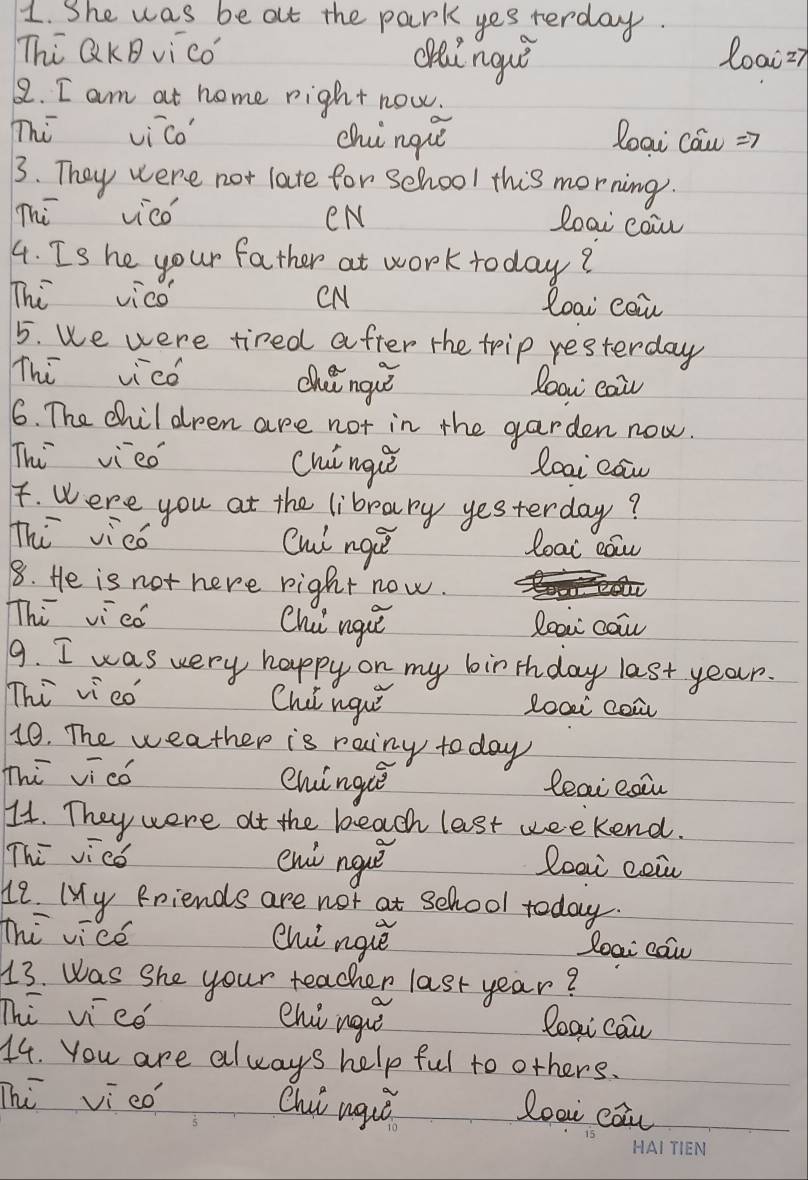 1. She was be at the park yesterday.
Thì QKĐ vì có chủ ngữ loại =>
2. I am at home right now.
Thì vì có chủ ngữ loại câu =>
3. They were not late for school this morning.
Thì vì có CN loại câu
4. Is he your father at work today?
Thì vì có CN loại câu
5. We were tired after the trip yesterday
Thì vì có chủ ngữ loại câu
6. The children are not in the garden now.
Thì vì có Chủ ngữ loại câu
7. Were you at the library yesterday?
Thì vì có Chủ ngữ loại câu
8. He is not here right now.
Thì vì có Chủ ngữ loại câu
9. I was very happy on my birthday last year.
Thì vì có Chủ ngữ loại câu
10. The weather is rainy today
Thì vì có Chủ ngữ loại câu
11. They were at the beach last weekend.
Thì vì có Chủ ngữ loại câu
12. My friends are not at school today.
Thì vì có Chủ ngữ loại câu
13. Was she your teacher last year?
Thì vì có Chủ ngữ loại câu
14. You are always helpful to others.
Thì vì có Chủ ngữ loại câu
5 10 15
HẢI TIEN